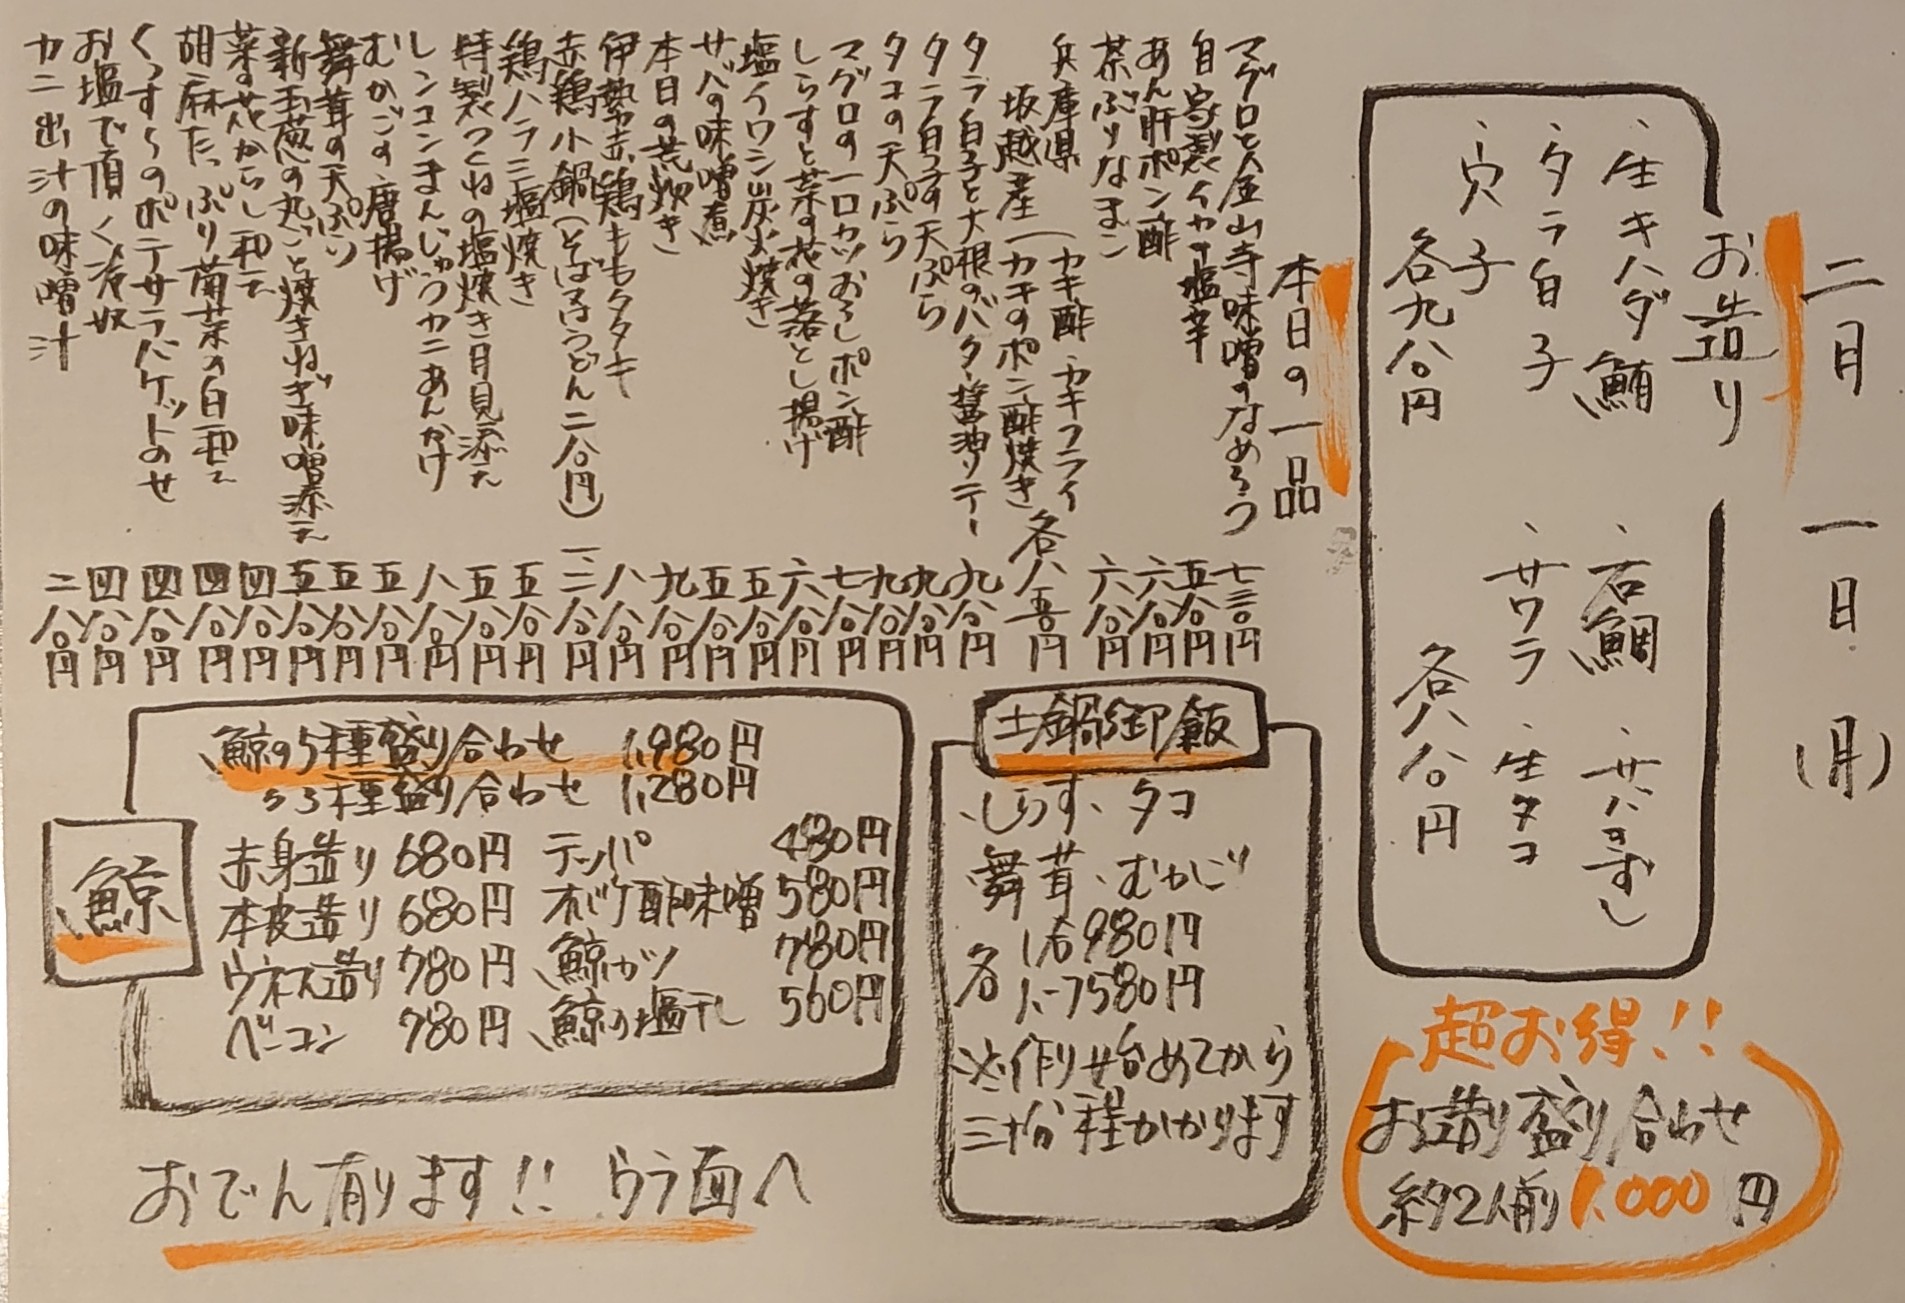 二月 一日 (月)
お造り
・生キハダ鮪
・タラ白子
・穴子
各九八〇円
・石鯛 ・サバきずし
・サワラ ・生タコ
各八八〇円
超お得!!
お造り盛り合わせ
約2人前 1,000円
本日の一品
マグロと金山寺味噌のなめろう 七三〇円
自家製イカの塩辛 五八〇円
あん肝ポン酢 六八〇円
茶ぶりなまこ 六八〇円
兵庫県坂越産(カキ酢・カキフライ
カキのポン酢焼き 各八五〇円
タラ白子と大根のバター醤油ソテー 九八〇円
タラ白子の天ぷら 九八〇円
タコの天ぷら 九八〇円
マグロの一口カツおろしポン酢 七八〇円
しらすと菜の花の落とし揚げ 六八〇円
塩イワシ炭火焼き 五八〇円
サバの味噌煮 五八〇円
本日の荒炊き 九八〇円
伊勢赤鶏ももタタキ 八八〇円
赤鶏小鍋(そば又はうどん二八〇円) 一、二八〇円
鶏ハラミ塩焼き 五八〇円
特製つくねの塩焼き月見添え 五八〇円
レンコンまんじゅうカニあんかけ 八八〇円
むかごの唐揚げ 五八〇円
舞茸の天ぷら 五八〇円
新玉葱の丸ごと焼きねぎ味噌添え 五八〇円
菜の花からし和え 四八〇円
胡麻たっぷり菊菜の白和え 四八〇円
くっすーのポテサラバケットのせ 四八〇円
お塩で頂く冷奴 四八〇円
カニ出汁の味噌汁 二八〇円
土鍋御飯
・しらす・タコ
舞茸・むかご
各 1合 980円
1.5合 1580円
※作り始めてから
三十分程かかります
鯨
鯨の5種盛り合わせ 1,980円
〃 3種盛り合わせ 1,280円
赤身造り 680円 テッパ 480円
本皮造り 680円 オバケ酢味噌 580円
ウネス造り 780円 鯨カツ 780円
ベーコン 780円 鯨の塩干し 560円
おでん有ります!! ウラ面へ